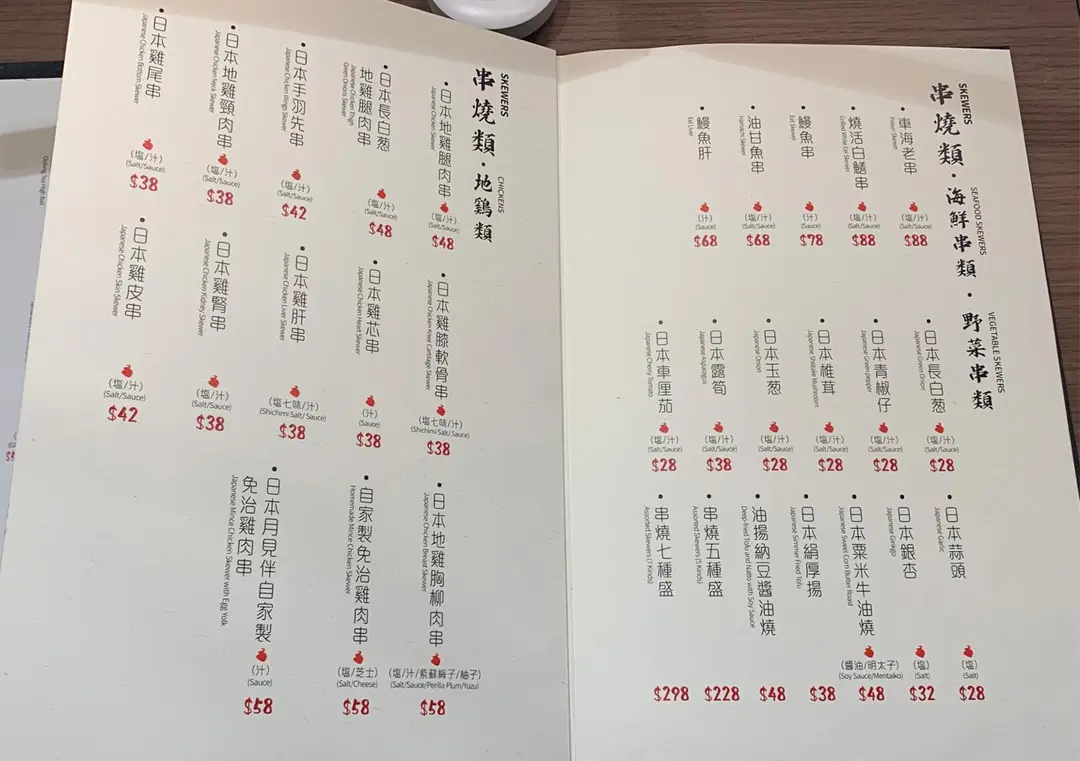 SKEWERS
串燒類・地鶏類
CHICKENS
・日本地雞腿肉串
Japanese Chicken Skewer
(塩/汁)
(Salt/Sauce)
$48
・日本長白葱
地雞腿肉串
Japanese Chicken Thigh
Green Onions Skewer
(塩/汁)
(Salt/Sauce)
$48
・日本手羽先串
Japanese Chicken Wings Skewer
(塩/汁)
(Salt/Sauce)
$42
・日本地雞頸肉串
Japanese Chicken Neck Skewer
(塩/汁)
(Salt/Sauce)
$38
・日本雞尾串
Japanese Chicken Bottom Skewer
(塩/汁)
(Salt/Sauce)
$38
・日本雞膝軟骨串
Japanese Chicken Knee Cartilage Skewer
(塩七味/汁)
(Shichimi Salt/Sauce)
$38
・日本雞芯串
Japanese Chicken Heart Skewer
(汁)
(Sauce)
$38
・日本雞肝串
Japanese Chicken Liver Skewer
(塩七味/汁)
(Shichimi Salt/Sauce)
$38
・日本雞腎串
Japanese Chicken Kidney Skewer
(塩/汁)
(Salt/Sauce)
$38
・日本雞皮串
Japanese Chicken Skin Skewer
(塩/汁)
(Salt/Sauce)
$42
・日本地雞胸柳肉串
Japanese Chicken Breast Skewer
(塩/汁/紫蘇梅子/柚子)
(Salt/Sauce/Perilla Plum/Yuzu)
$58
・自家製免治雞肉串
Homemade Mince Chicken Skewer
(塩/芝士)
(Salt/Cheese)
$58
・日本月見伴自家製
免治雞肉串
Japanese Mince Chicken Skewer with Egg Yolk
(汁)
(Sauce)
$58
SKEWERS
串燒類・海鮮串類・野菜串類
SEAFOOD SKEWERS
VEGETABLE SKEWERS
・車海老串
Prawn Skewer
(塩/汁)
(Salt/Sauce)
$88
・燒活白鱔串
Grilled White Eel Skewer
(塩/汁)
(Salt/Sauce)
$88
・鰻魚串
Eel Skewer
(汁)
(Sauce)
$78
・油甘魚串
Hamachi Skewer
(塩/汁)
(Salt/Sauce)
$68
・鰻魚肝
Eel Liver
(汁)
(Sauce)
$68
・日本長白葱
Japanese Green Onion
(塩/汁)
(Salt/Sauce)
$28
・日本青椒仔
Japanese Green pepper
(塩/汁)
(Salt/Sauce)
$28
・日本椎茸
Japanese Shiitake Mushroom
(塩/汁)
(Salt/Sauce)
$28
・日本玉葱
Japanese Onion
(塩/汁)
(Salt/Sauce)
$28
・日本露筍
Japanese Asparagus
(塩/汁)
(Salt/Sauce)
$38
・日本車厘茄
Japanese Cherry Tomato
(塩/汁)
(Salt/Sauce)
$28
・日本蒜頭
Japanese Garlic
(塩)
(Salt)
$28
・日本銀杏
Japanese Ginkgo
(塩)
(Salt)
$32
・日本粟米牛油燒
Japanese Sweet Corn Butter Roast
(醬油/明太子)
(Soy Sauce/Mentaiko)
$48
・日本絹厚揚
Japanese Simmer Fried Tofu
$38
・油揚納豆醬油燒
Deep-fried Tofu and Natto with Soy Sauce
$48
・串燒五種盛
Assorted Skewers (5 Kinds)
$228
・串燒七種盛
Assorted Skewers (7 Kinds)
$298